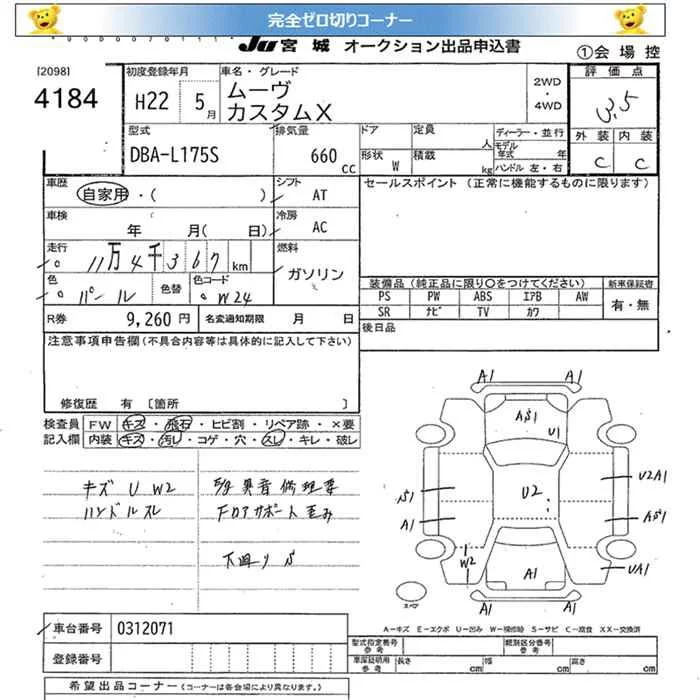 完全ゼロ切りコーナー
JU 宮城 オークション出品申込書
①会場控
[2098]
4184
初度登録年月
H22 5月
車名・グレード
ムーヴ
カスタムX
2WD
・
4WD
評価点
3.5
外装 内装
C C
型式
DBA-L175S
排気量
660 cc
ドア 定員 人
形状 W 積載 kg
ディーラー・並行
モデル年式 年
ハンドル 左・右
車歴
自家用・( )
シフト
AT
セールスポイント (正常に機能するものに限ります)
車検
年 月( 日)
冷房
AC
走行
11万4千367km
燃料
ガソリン
色
パール
色替
色コード
W24
装備品(純正品に限り○をつけてください)
PS PW ABS エアB AW
SR ナビ TV カワ
新車保証書
有・無
R券 9,260円
名変通知期限 月 日
後日品
注意事項申告欄(不具合内容等は具体的に記入して下さい)
修復歴 有 〔箇所
検査員記入欄
FW キズ・飛石・ヒビ割・リペア跡・×要
内装 キズ・汚レ・コゲ・穴・スレ・キレ・破レ
キズ U W2
ハンドルスレ
異音修理要
下廻り S
A1 A1
AS1
U1
S1
A1
U2
U2A1
AS1
W2
A1
UA1
A1 A1
スペア
A-キズ E-エクボ U-凹み W-補修跡 S-サビ C-腐食 XX-交換済
車台番号 0312071
登録番号
型式指定番号 参考
類別区分番号 参考
車庫証明用 参考
長さ cm
幅 cm
高さ cm
希望出品コーナー(コーナーは各会場により異なります。)